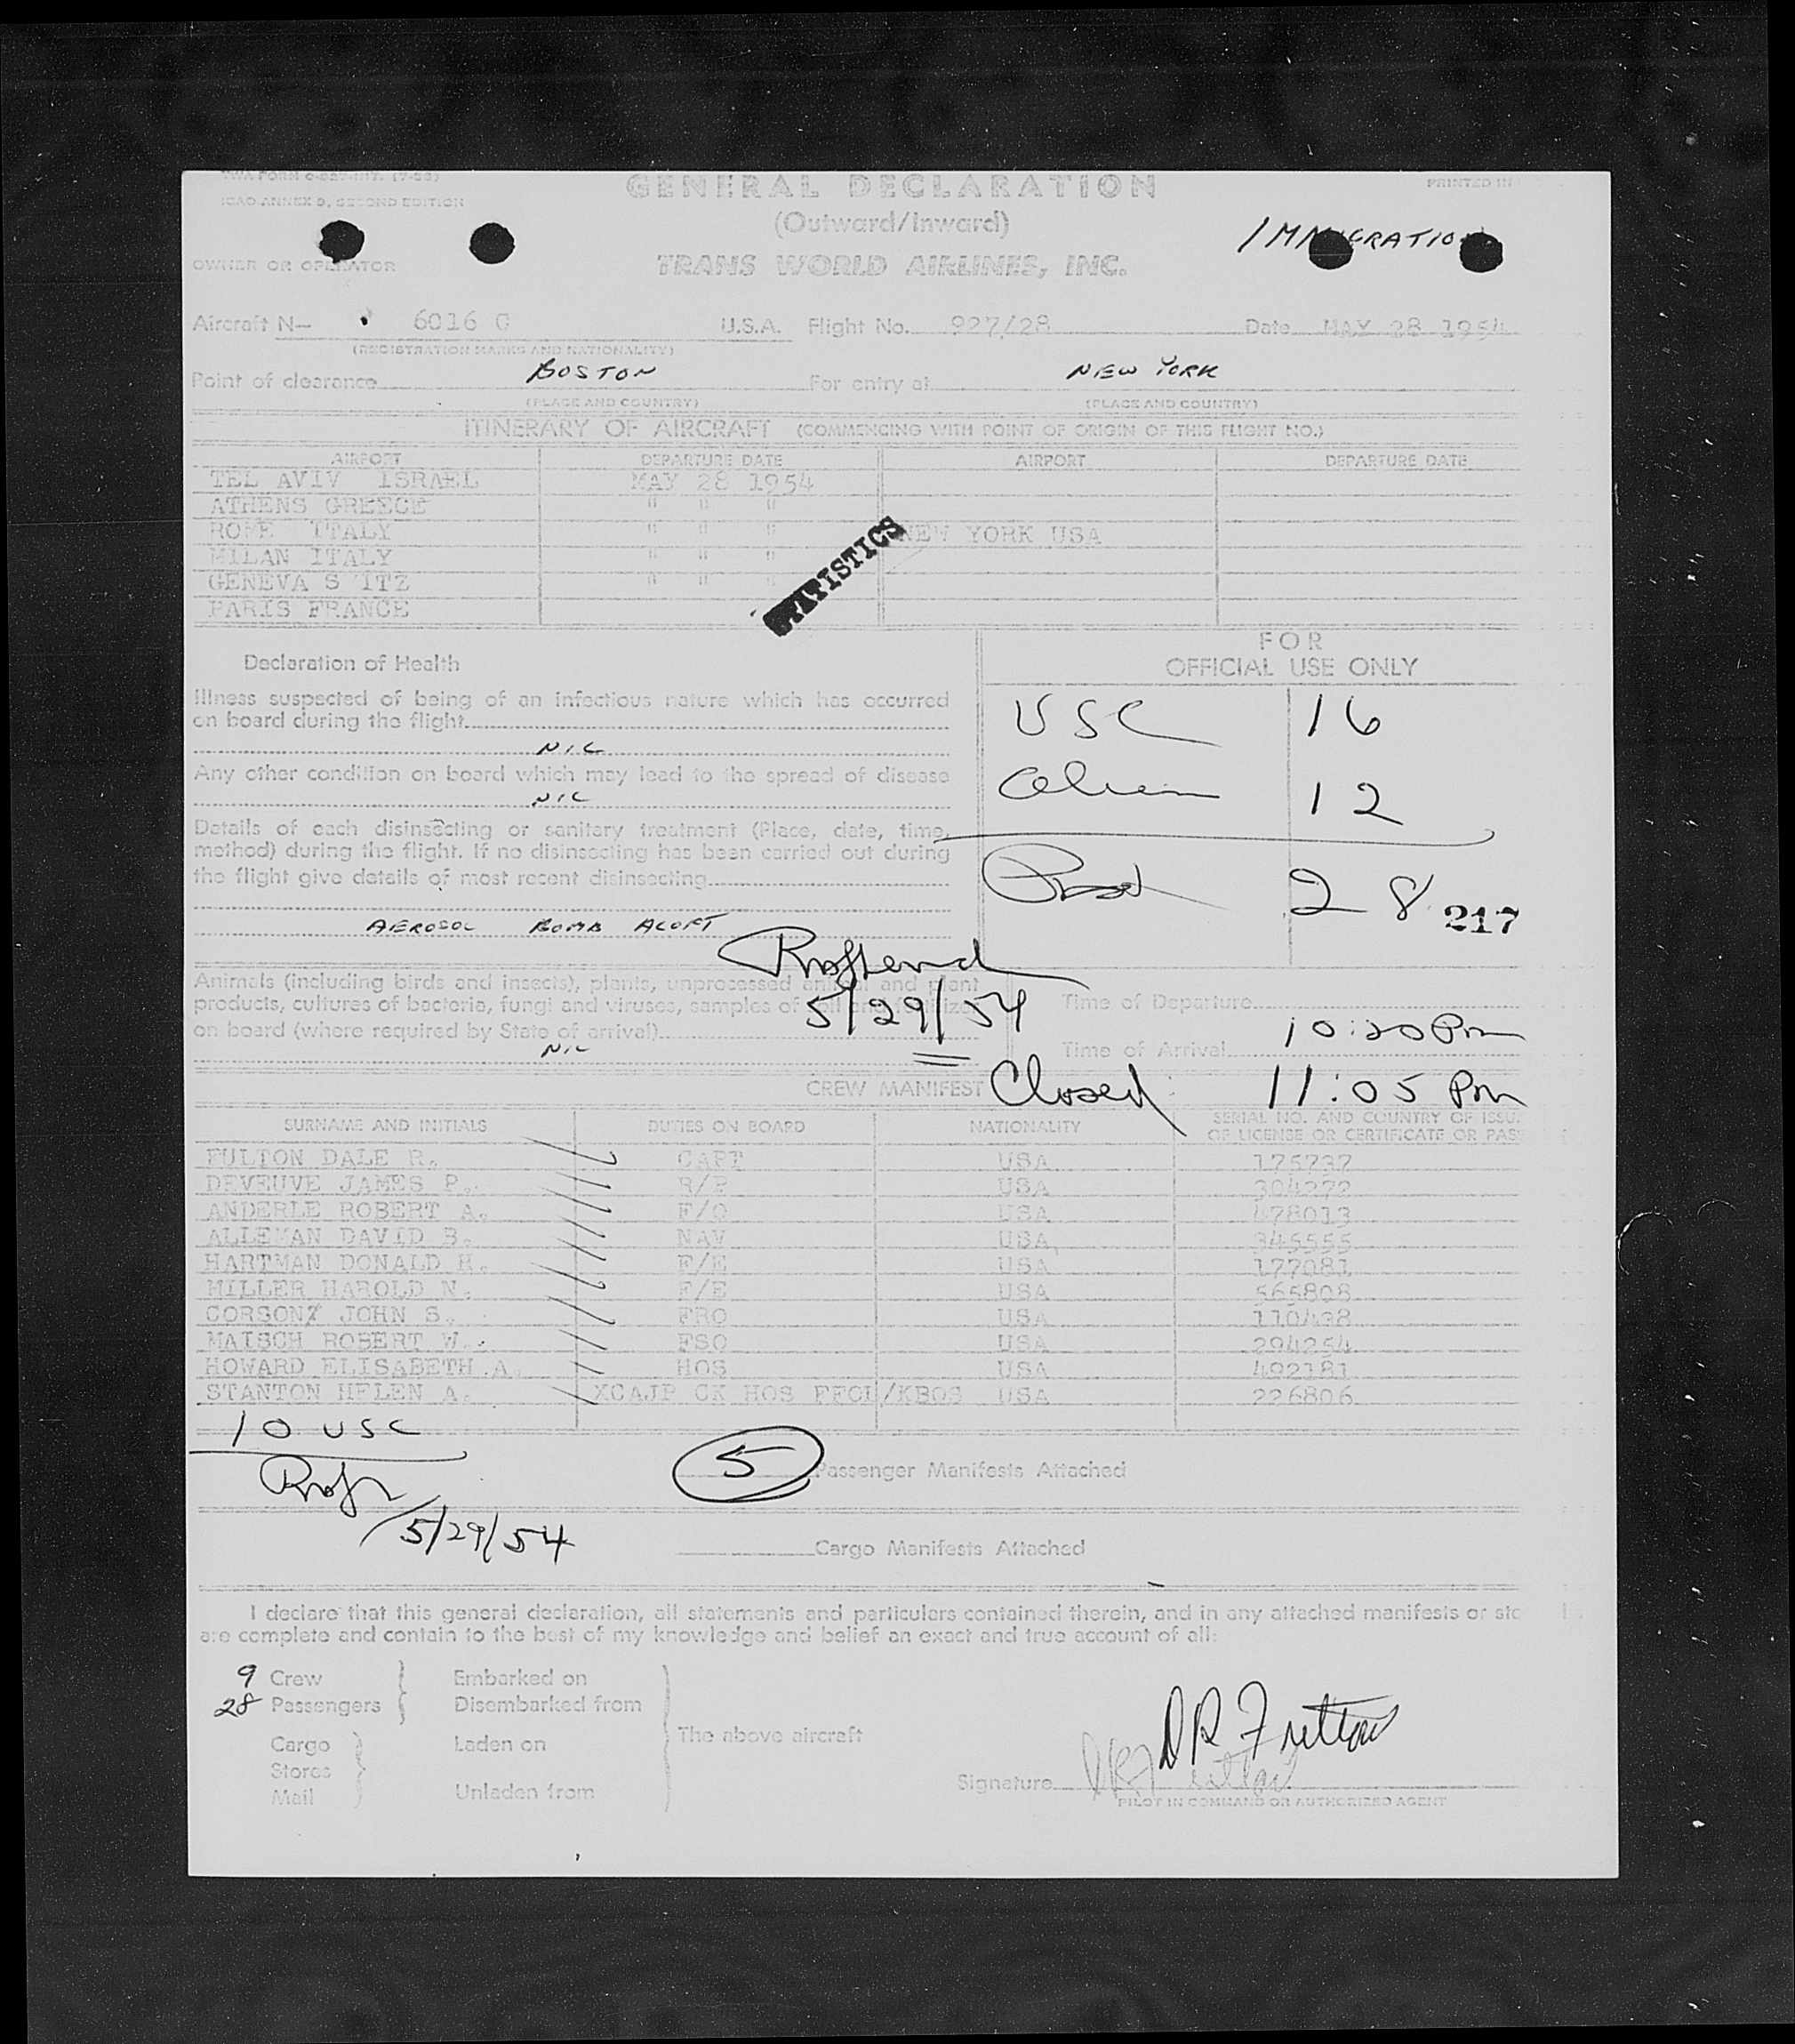 ICAO ANNEX 9, SECOND EDITION
GENERAL DECLARATION
PRINTED IN
(Outward/Inward)
IMMIGRATION
OWNER OR OPERATOR
TRANS WORLD AIRLINES, INC.
Aircraft N— 6016 C U.S.A. Flight No. 927/28 Date MAY 28 1954
(REGISTRATION MARKS AND NATIONALITY)
Point of clearance BOSTON For entry at NEW YORK
(PLACE AND COUNTRY) (PLACE AND COUNTRY)
ITINERARY OF AIRCRAFT (COMMENCING WITH POINT OF ORIGIN OF THIS FLIGHT NO.)
AIRPORT DEPARTURE DATE AIRPORT DEPARTURE DATE
TEL AVIV ISRAEL MAY 28 1954
ATHENS GREECE " " "
ROME ITALY " " " NEW YORK USA
MILAN ITALY " " "
GENEVA S ITZ " " "
PARIS FRANCE
STATISTICS
Declaration of Health
FOR
OFFICIAL USE ONLY
Illness suspected of being of an infectious nature which has occurred
on board during the flight
NIL
USC 16
Any other condition on board which may lead to the spread of disease
NIL
Alien 12
Details of each disinsecting or sanitary treatment (Place, date, time,
method) during the flight. If no disinsecting has been carried out during
the flight give details of most recent disinsecting
28
217
AEROSOL BOMB ALOFT
Animals (including birds and insects), plants, unprocessed animal and plant
products, cultures of bacteria, fungi and viruses, samples of
on board (where required by State of arrival)
NIL
5/29/54
Time of Departure
Time of Arrival 10:20 Pm
CREW MANIFEST Closed 11:05 Pm
SURNAME AND INITIALS DUTIES ON BOARD NATIONALITY SERIAL NO. AND COUNTRY OF ISSU
OF LICENSE OR CERTIFICATE OR PAS
FULTON DALE R. CAPT USA 175737
DEVEUVE JAMES P. USA 304272
ANDERLE ROBERT A. F/O USA 478013
ALLEMAN DAVID B. NAV USA 345555
HARTMAN DONALD H. F/E USA 177081
MILLER HAROLD N. F/E USA 565808
CORSON JOHN S. FRO USA 110438
MAISCH ROBERT W. FSO USA 294254
HOWARD ELISABETH A. HOS USA 492181
STANTON HELEN A. XCAJP CK HOS FFCL/KBOS USA 226806
10 USC
5 Passenger Manifests Attached
5/29/54
Cargo Manifests Attached
I declare that this general declaration, all statements and particulars contained therein, and in any attached manifests or
are complete and contain to the best of my knowledge and belief an exact and true account of all:
9 Crew Embarked on
28 Passengers Disembarked from
The above aircraft
Cargo Laden on
Stores
Mail Unladen from
Signature
PILOT IN COMMAND OR AUTHORIZED AGENT